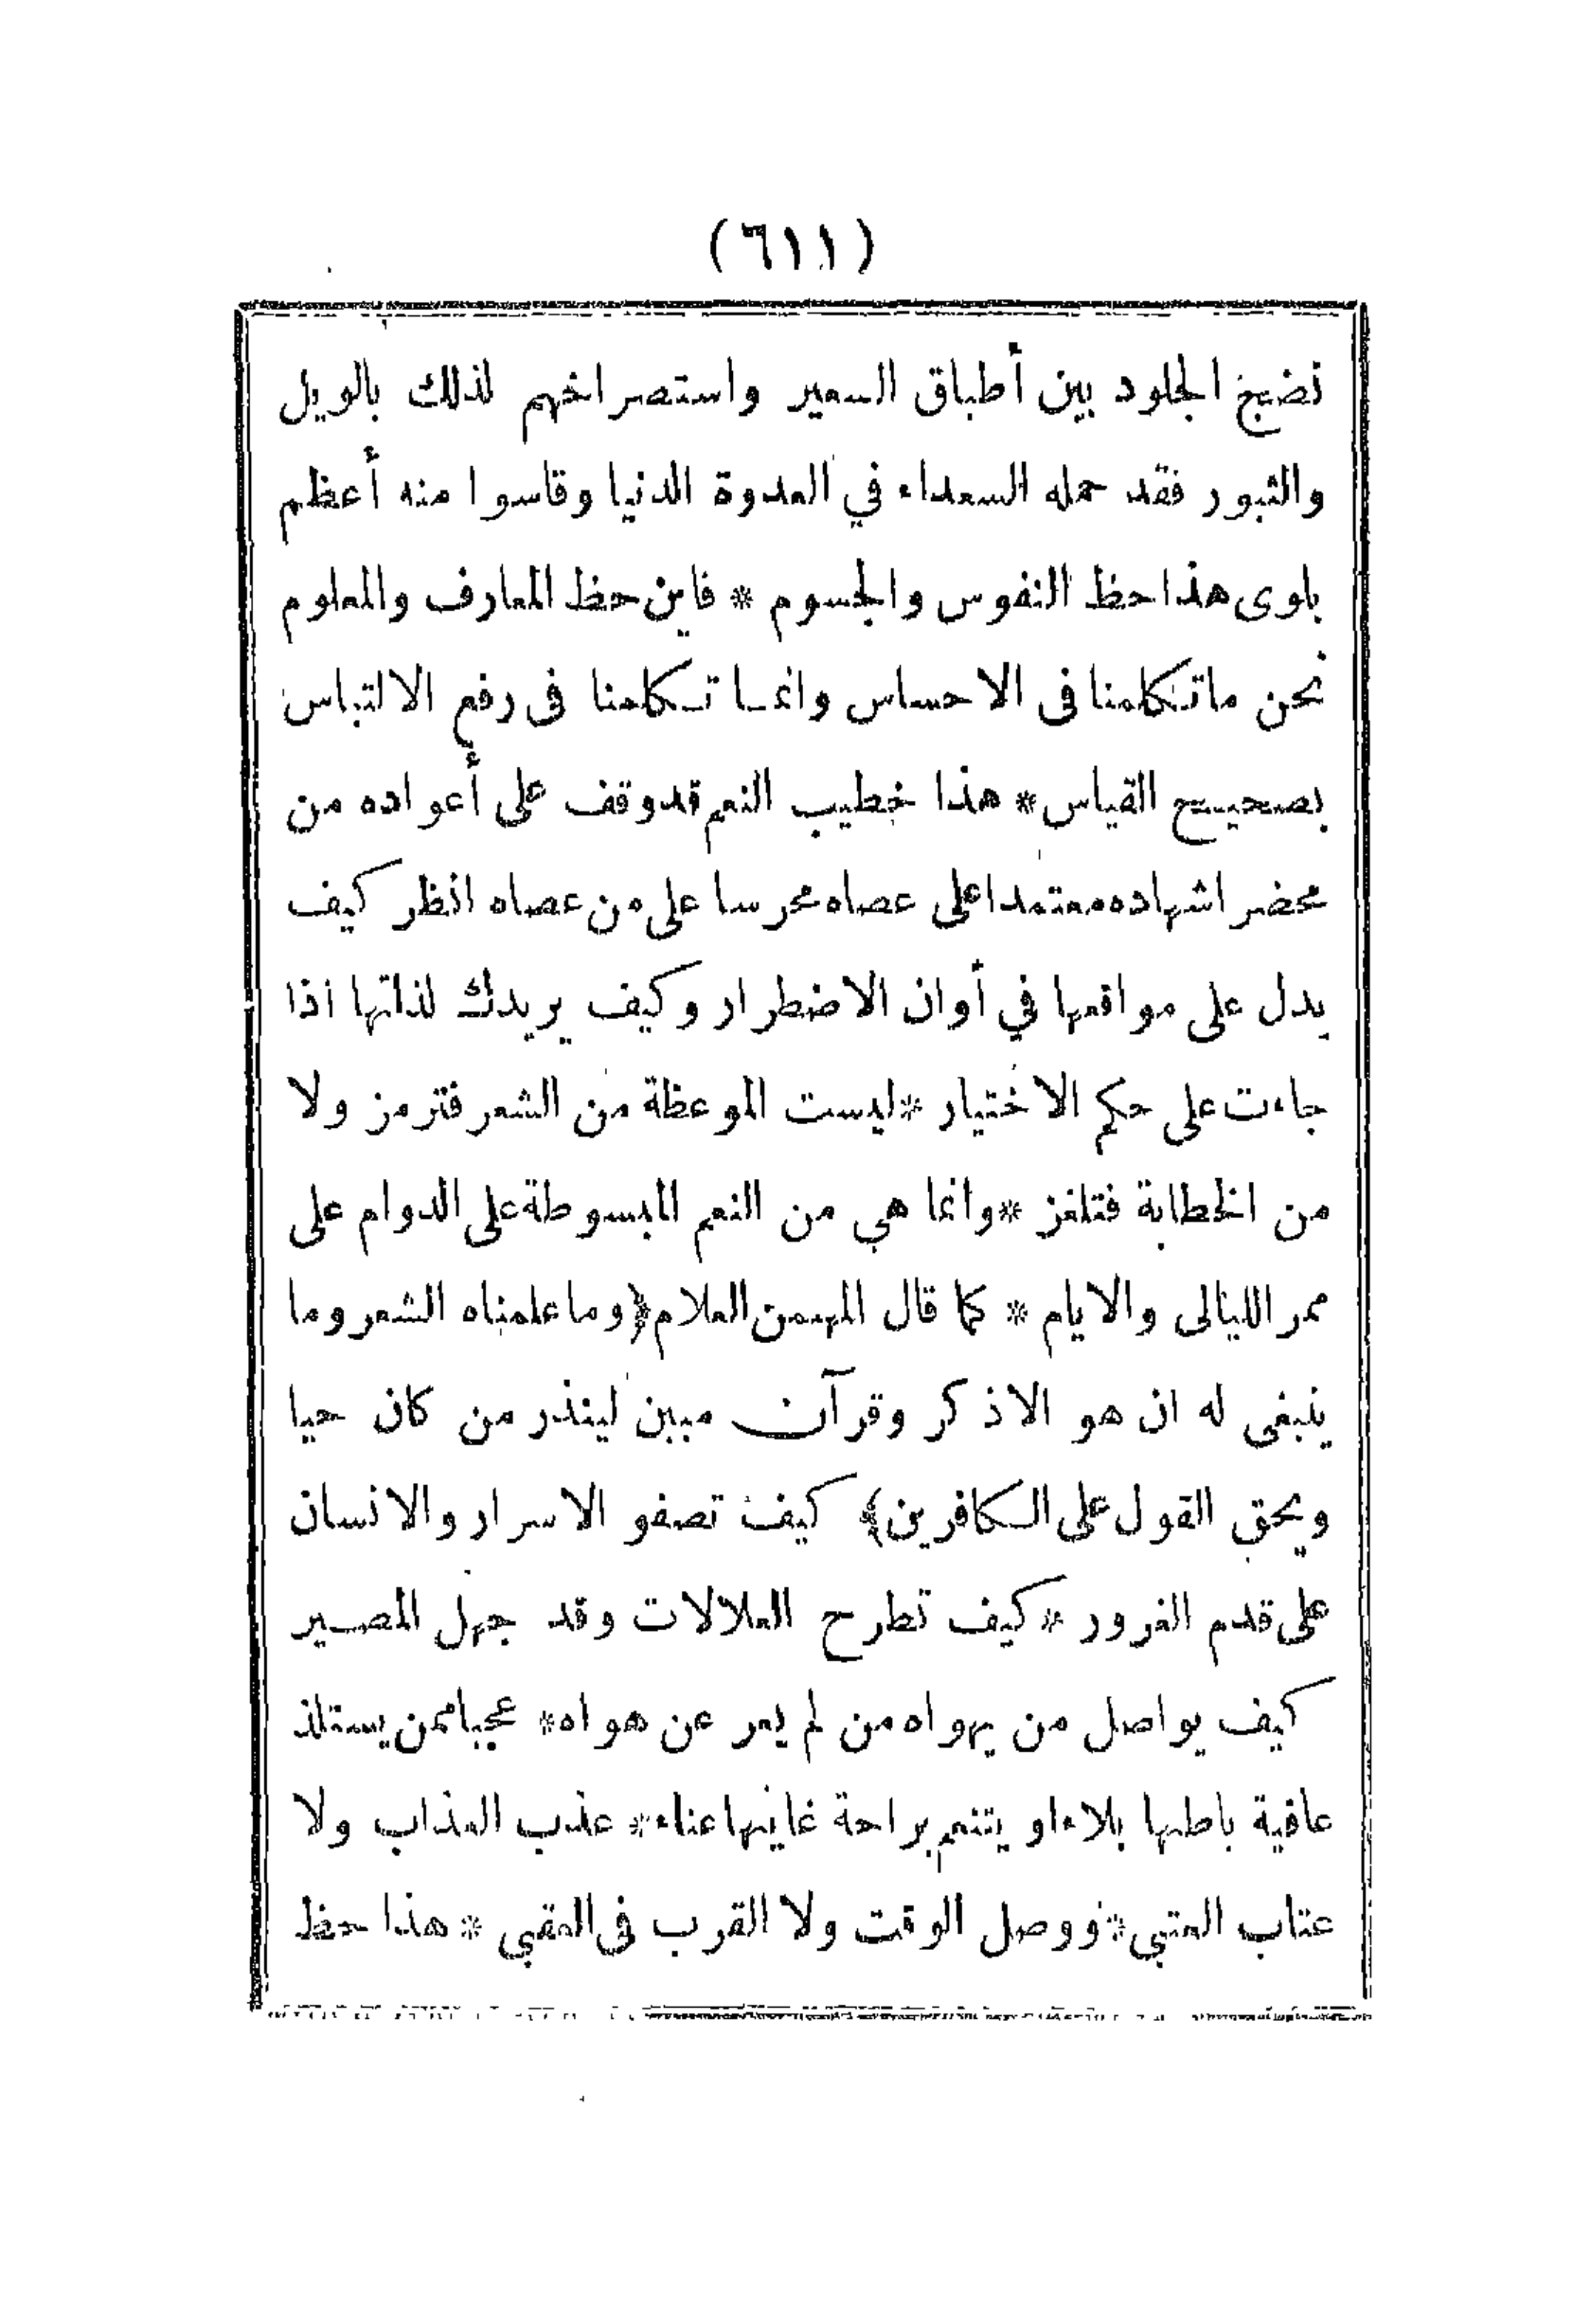 (٦١١)
نضج الجلود بين أطباق السعير واستصراخهم لذلك بالويل
والثبور فقد حمله السعداء في العدوة الدنيا وقاسوا منه أعظم
بلوى هذا حظ النفوس والجسوم * فاين حظ المعارف والعلوم
نحن ماتكلمنا فى الاحساس وانما تكلمنا فى رفع الالتباس
بصحيح القياس * هذا خطيب النعم قد وقف على أعواده من
محضر اشهاده معتمدا على عصاه محرسا على من عصاه انظر كيف
يدل على مواقعها في أوان الاضطرار وكيف يريدك لذاتها اذا
جاءت على حكم الاختيار * ليست الموعظة من الشعر فترمز ولا
من الخطابة فتلغز * وانما هي من النعم المبسوطة على الدوام على
ممر الليالى والايام * كما قال المهيمن العلام ﴿وما علمناه الشعر وما
ينبغى له ان هو الا ذكر وقرآن مبين لينذر من كان حيا
ويحق القول على الكافرين﴾ كيف تصفو الاسرار والانسان
على قدم الغرور * كيف تطرح العلالات وقد جهل المصير
كيف يواصل من يهواه من لم يعر عن هواه * عجبا ممن يستلذ
عافية باطنها بلاء او يتنعم براحة غايتها عناء * عذب العذاب ولا
عتاب العتبى * ووصل الوقت ولا القرب فى العقبى * هذا حظ